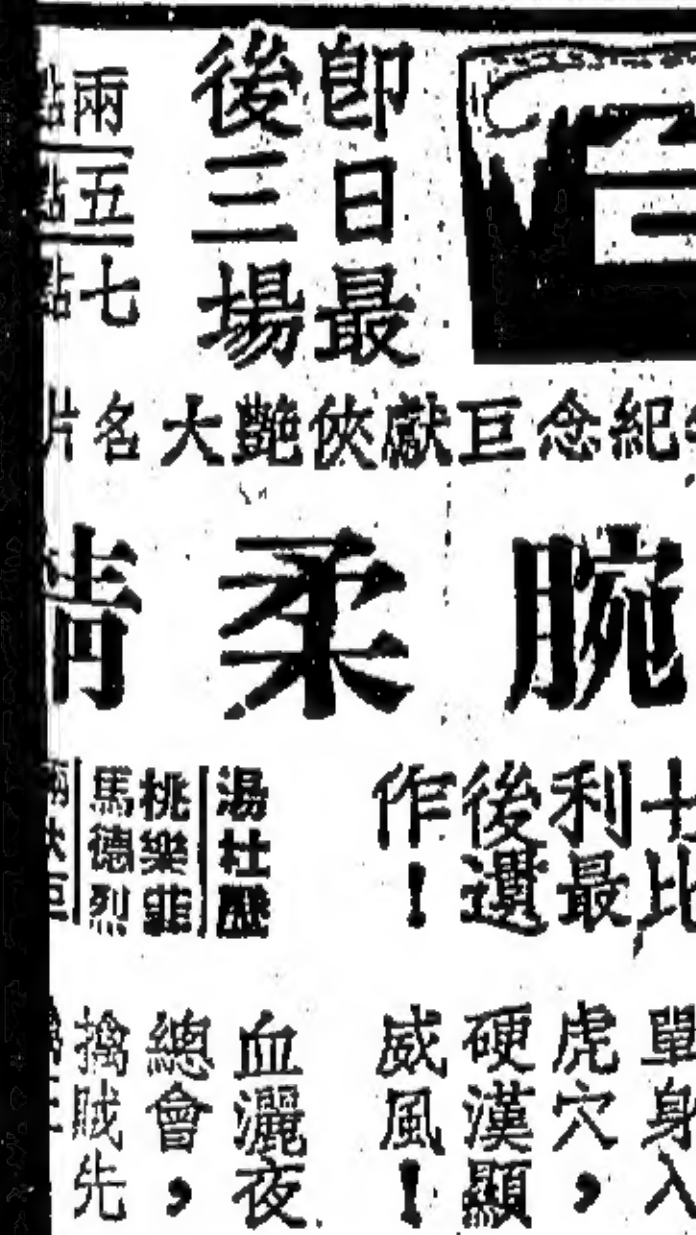 即日最
後三場
兩點
五點
七點
紀念巨獻俠艷大名片
腕柔情
士比
利最
後遺
作！
湯杜歷
桃樂菲
馬德烈
單身入
虎穴，
硬漢顯
威風！
血灑夜
總會，
擒賊先